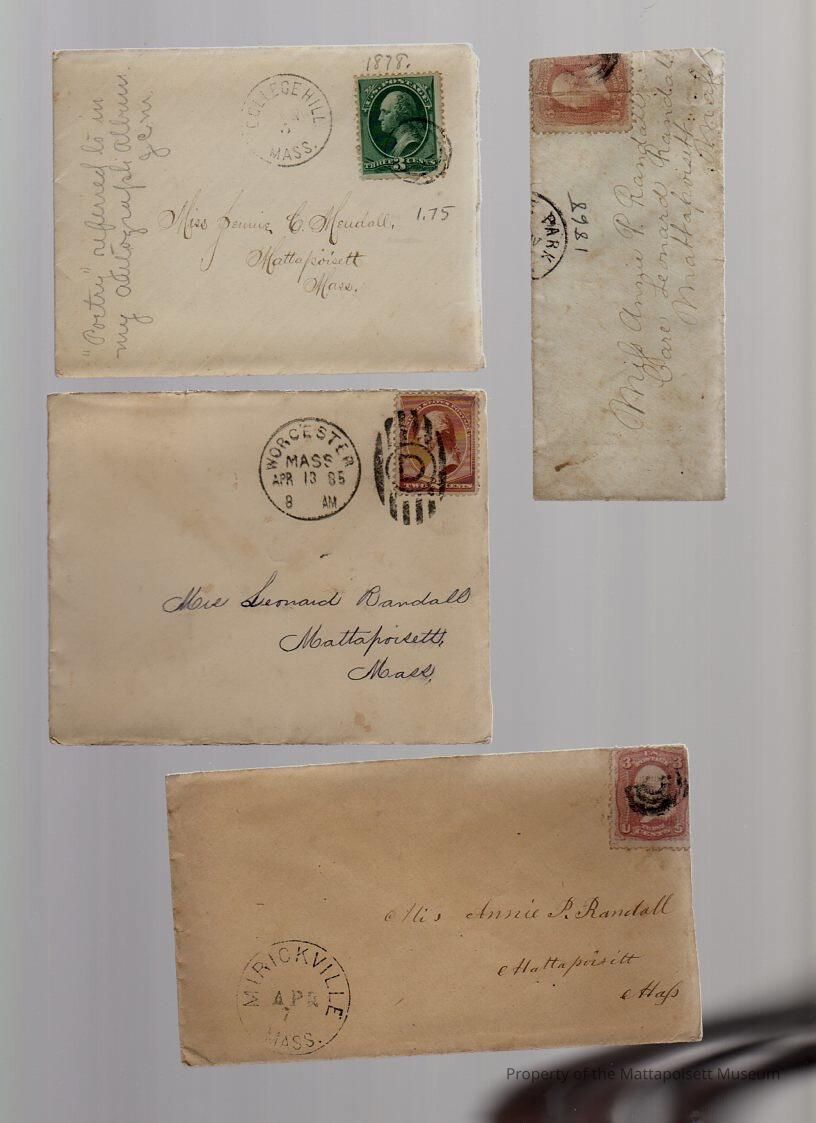 1878.
COLLEGE HILL
MASS.
U.S. POSTAGE
THREE 3 CENTS
"Poetry" referred to in
my autograph album.
J.C.M.
Miss Jennie C. Mendall,
1.75
Mattapoisett
Mass.
PARK
1868
Miss Annie P. Randall
Care Leonard Randall
Mattapoisett
Mass
WORCESTER
MASS
APR 13 85
8 AM
D
TWO CENTS
Mrs Leonard Randall
Mattapoisett,
Mass,
3 3
U S
Miss Annie P. Randall
Mattapoisett
Mass
MIRICKVILLE
APR
7
MASS.
Property of the Mattapoisett Museum